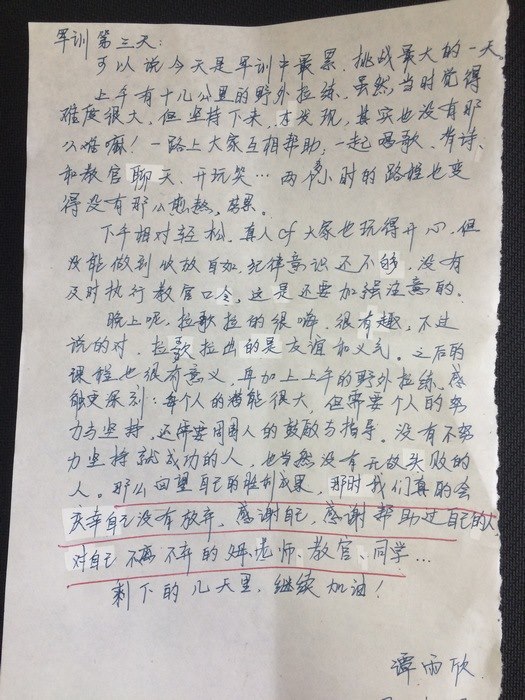 军训第三天:
可以说今天是军训中最累、挑战最大的一天。
上午有十几公里的野外拉练。虽然当时觉得
难度很大,但坚持下来,才发现,其实也没有那
么难嘛!一路上大家互相帮助,一起唱歌、背诗、
和教官聊天、开玩笑…两个多小时的路程也变
得没有那么煎熬、劳累。
下午相对轻松,真人cf大家也玩得开心,但
没能做到收放自如,纪律意识还不够,没有
及时执行教官口令。这是还要加强注意的。
晚上呢,拉歌拉的很嗨,很有趣,不过
说的对,拉歌拉出的是友谊和义气。之后的
课程也很有意义,再加上上午的野外拉练,感
触更深刻:每个人的潜能很大,但需要个人的努
力与坚持,还需要周围人的鼓励与指导。没有不努
力坚持就成功的人,也当然没有无故失败的
人。那么回望自己的胜利成果,那时我们真的会
庆幸自己没有放弃,感谢自己,感谢帮助过自己的人,
对自己不离不弃的老师、教官、同学…
剩下的几天里,继续加油!
谭雨欣